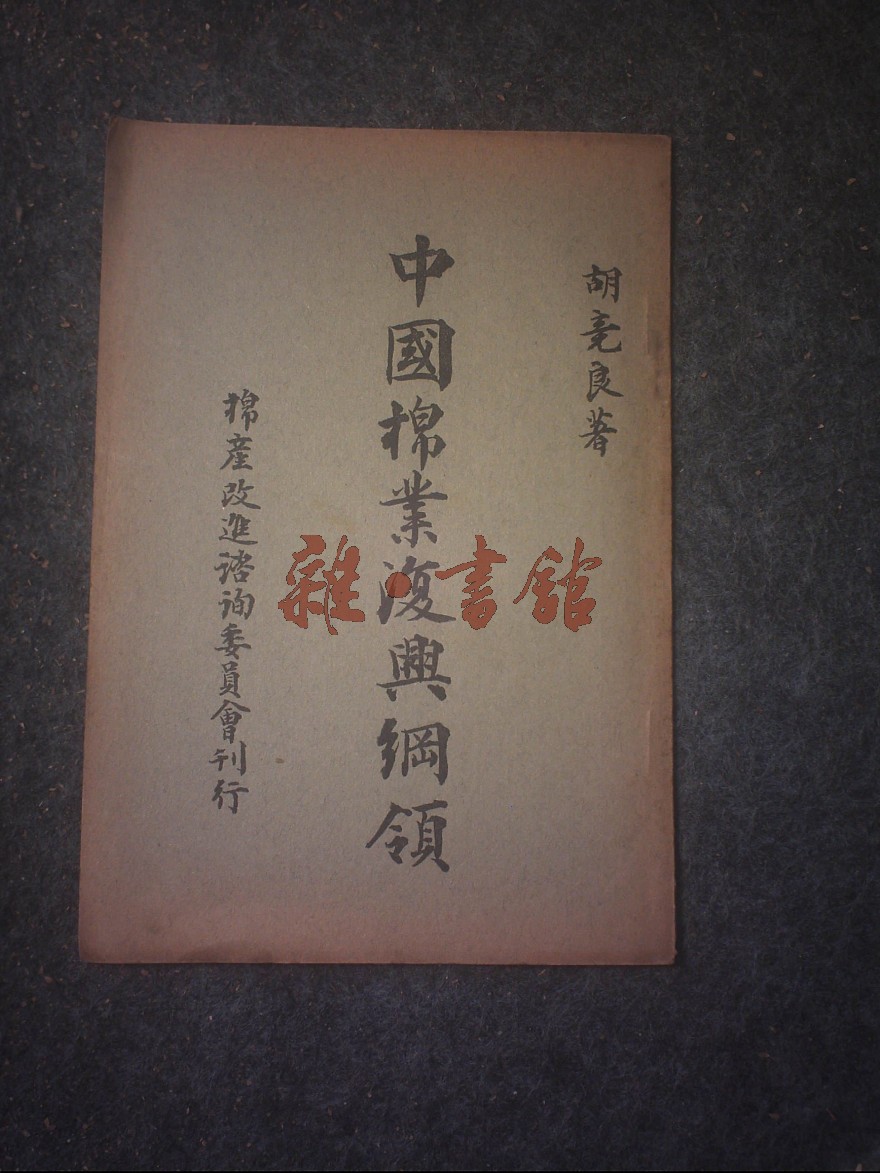 胡竟良著
中國棉業復興綱領
棉產改進諮詢委員會刊行
雜·書館